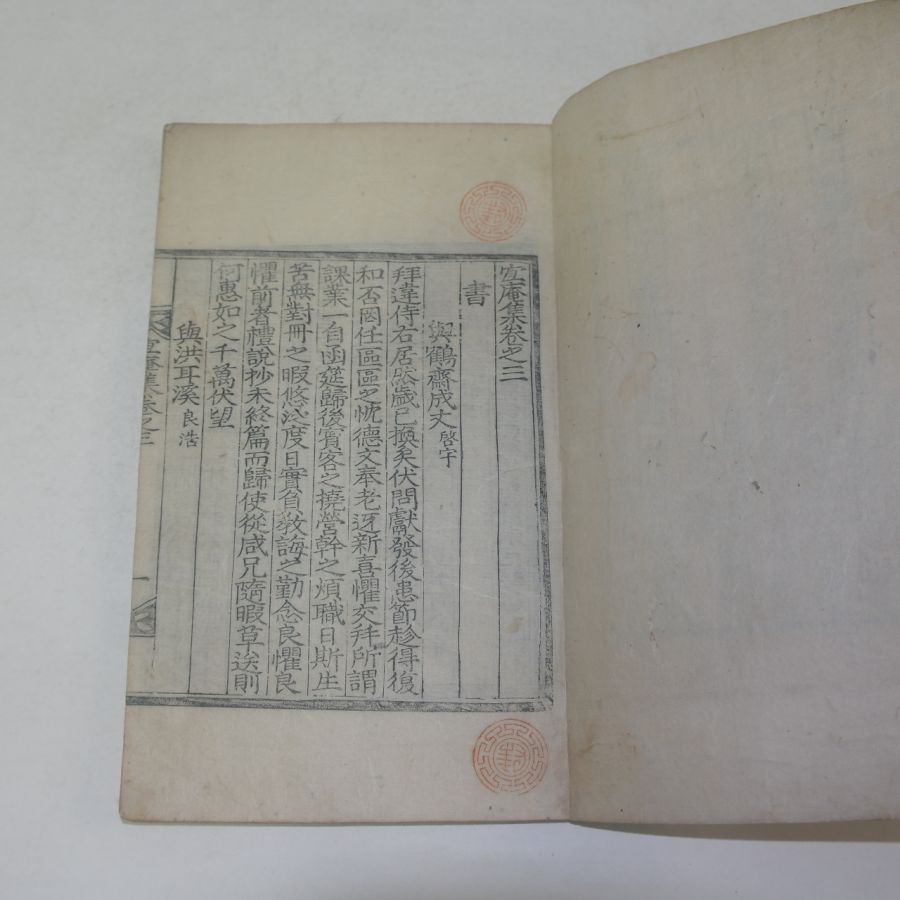 宜庵集卷之三
書
與鶴齋成丈啓宇
拜違侍右居然歲已換矣伏問獻發後患節趁得復
和否固任區區之忱德文奉老迓新喜懼交拜所謂
課業一自函筵歸後賓客之撓營幹之煩職日斯生
苦無對冊之暇悠泛度日實負教誨之勤念良懼良
懼前者禮說抄未終篇而歸使從咸兄隨暇草送則
何惠如之千萬伏望
與洪耳溪良浩
庵集卷之三
一